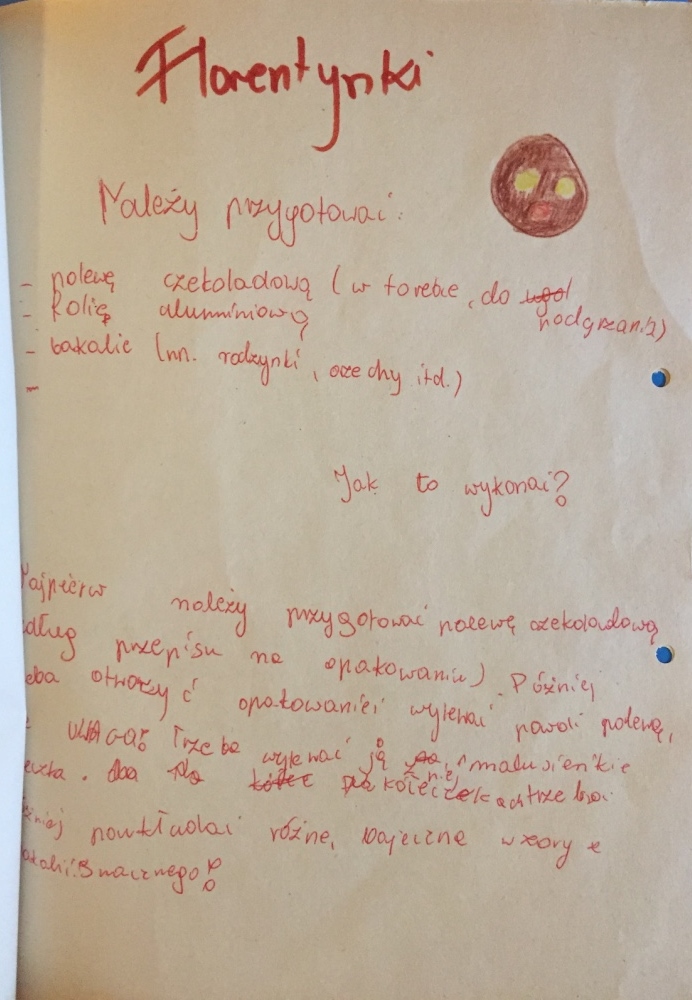 Florentynki
Należy przygotować:
- polewę czekoladową (w torebce, do
podgrzania)
- Folię aluminiową
- bakalie (np. rodzynki, orzechy itd.)
-
Jak to wykonać?
Najpierw należy przygotować polewę czekoladową
dług przepisu na opakowaniu). Później
eba otworzyć opakowanie i wylewać powoli polewę,
UWAGA! Trzeba wylewać ją malusieńkie
eczka. Na kółeczkach trzeba
źniej powkładać różne, bajeczne wzory z
akalii. Smacznego!